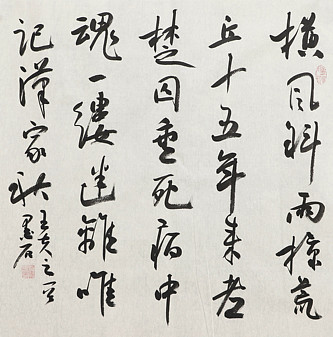 横风斜雨掠荒
丘十五年来老
楚囚垂死病中
魂一缕迷離唯
记漢家秋
墨石